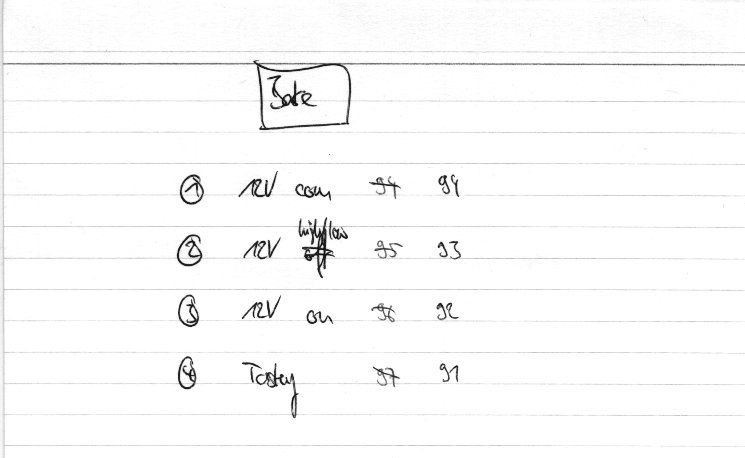 ① 12V com 94 94
② 12V high/low off 95 93
③ 12V on 96 92
④ 97 91